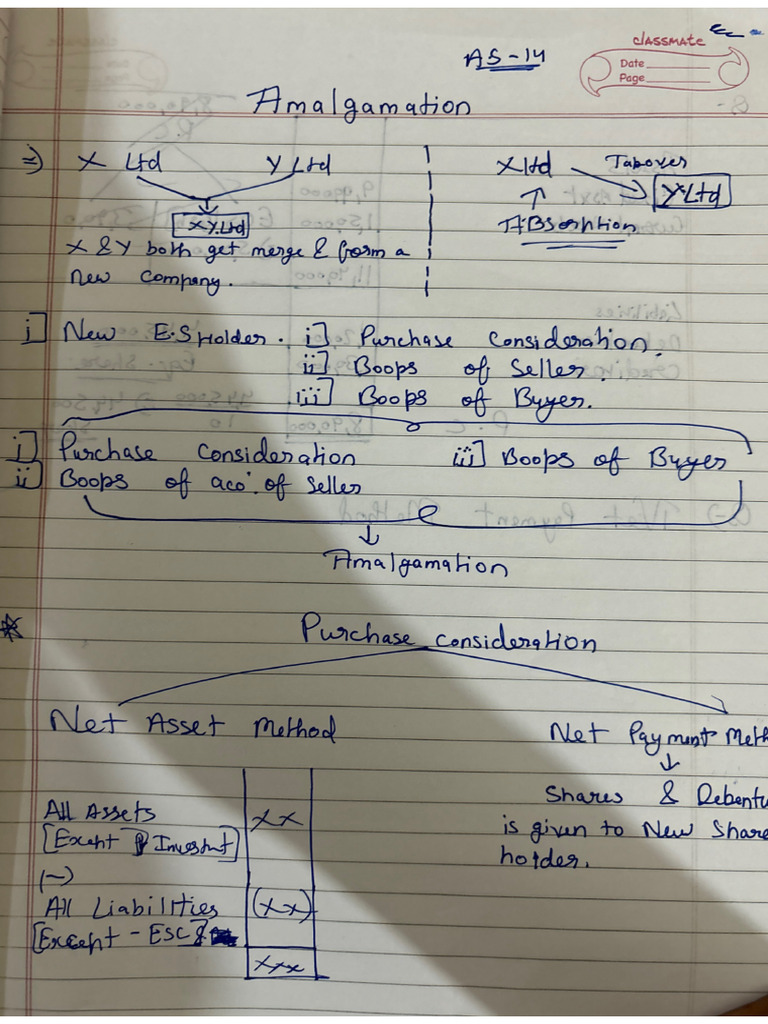 AS-14
classmate
Date
Page
Amalgamation
=> X Ltd Y Ltd
XY.Ltd
X & Y both get merge & form a
new company.
X Ltd Takover
Y Ltd
ABSorption
i] New E.S Holder. i] Purchase Consideration.
ii] Boops of Seller.
iii] Boops of Buyer.
i] Purchase Consideration iii] Boops of Buyer
ii] Boops of aco. of Seller
Amalgamation
* Purchase consideration
Net Asset Method
Net Payment Meth
All Assets xx
[Except
(-)
All Liabilities (xx)
[Except - ESC &
xxx
Shares & Debentu
is given to New Share
holder.